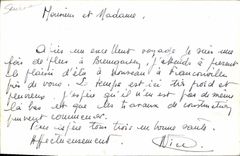 Monsieur et Madame.
Après un excellent voyage je suis une
fois de plus à Bremgarten, j'attends à présent
le plaisir d'être à nouveau à Franconville
près de vous. Le temps est ici très froid et
pluvieux, j'espère qu'il n'en est pas de même
là bas et que les travaux de construction
peuvent commencer.
J'espère tous trois en bonne santé.
Affectueusement.